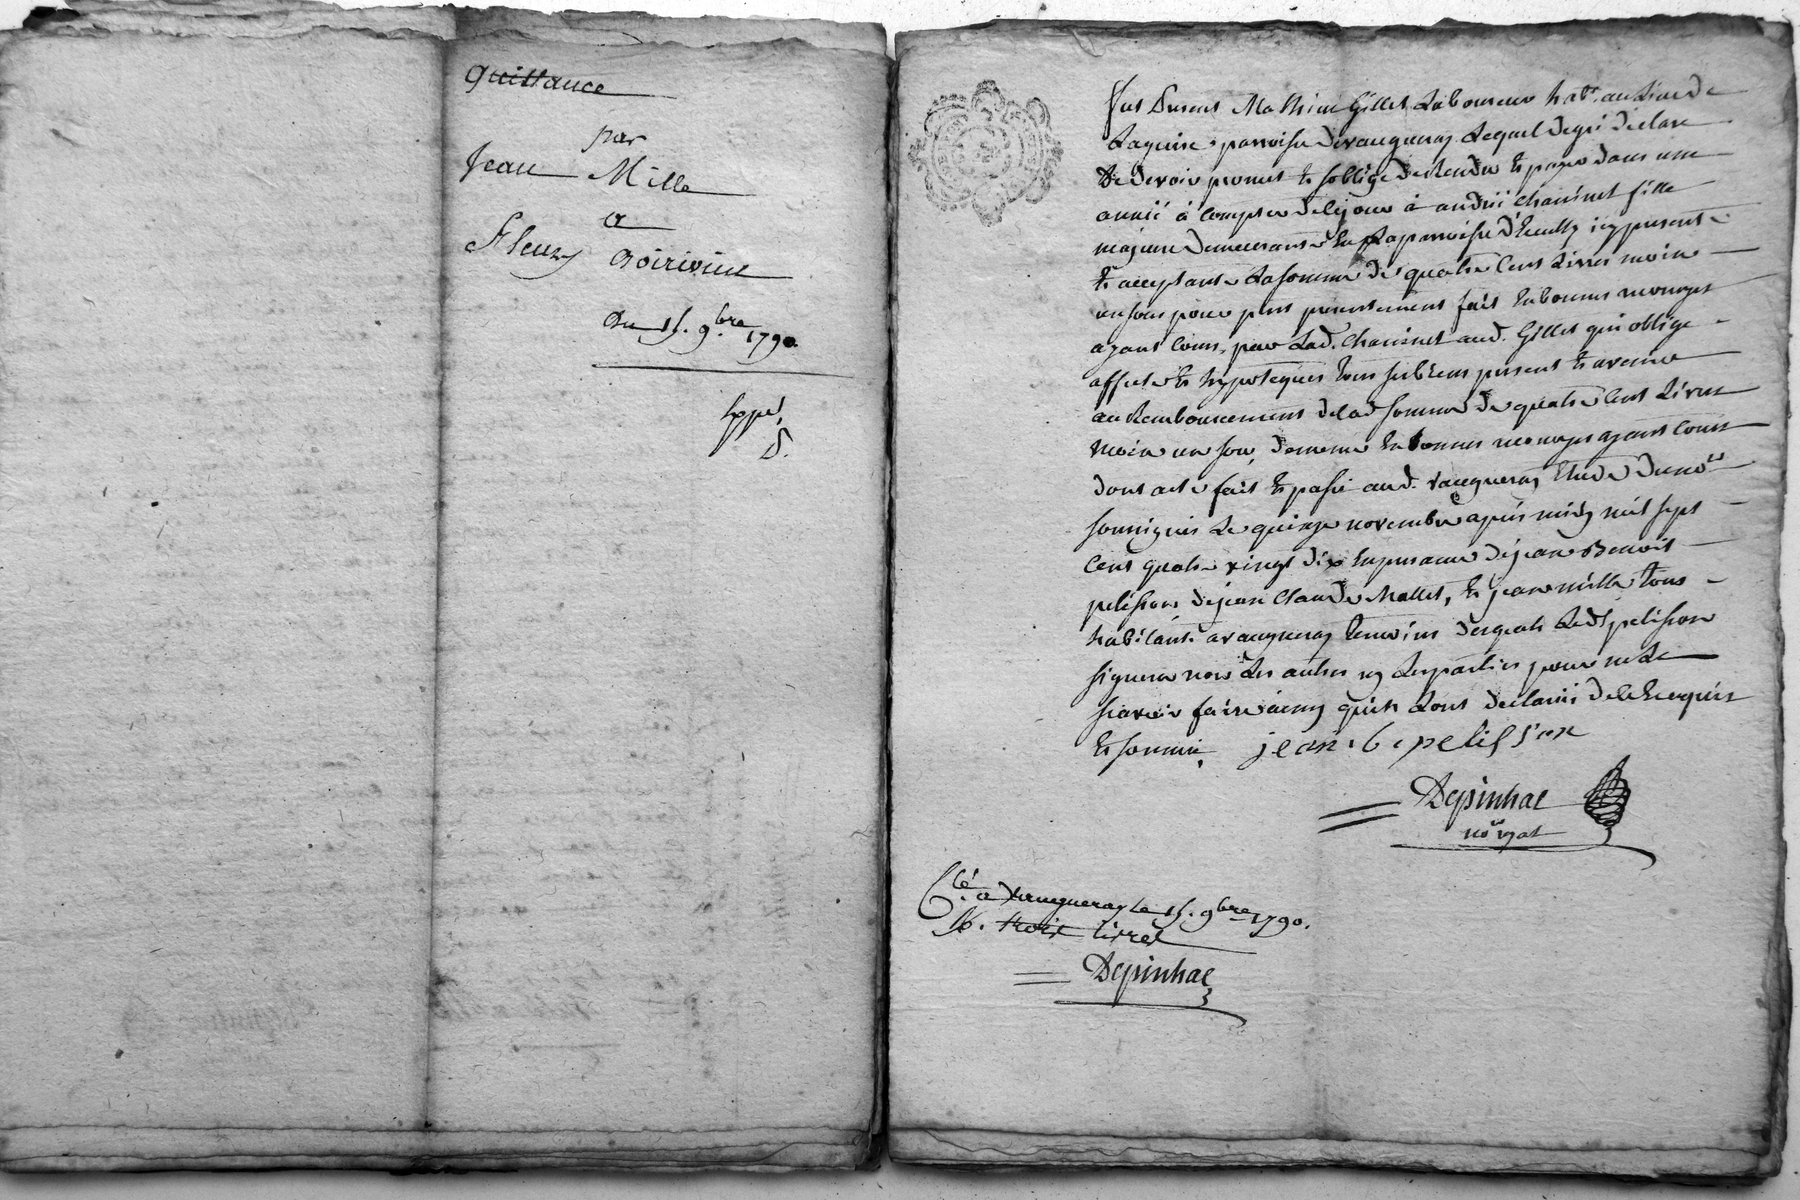 Quittance
par
Jean Mille
a
Fleury Goirivine
Du 15. 9.bre 1790.
Exppé.
D.
fut present Mathieu Gillet Laboureur hab.t au Lieu de
Laguise parroisse de vaugneray Lequel de gré declare
De devoir promet et soblige de Rendre et payer dans une
anneé à Compter de ce jour à andreé Chauinet fille
majeure demeurante en La parroisse d'Ecully icy presente
et acceptante La somme de quatre Cent Livres moin
un sous pour prest presentement fait en bonnes monoyes
ayant Cours, par Lad. Chauinet aud. Gillet qui oblige
affecte et hypoteques tous ses biens present et avenir
au Remboursement de lad. somme de quatre Cent Livres
moin un sou, de meme en bonnes monoyes ayant Cours
dont acte fait et passé aud. vaugneray Etude du no.re
soussignés Le quinze novembre apres midy mil sept
Cent quatre vingt dix en presence de jean Benoit
pelisson, de jean Claude Mallet, et jean mille tous
habitants a vaugneray temoins desquels Led. pelisson
signera non Les autres ny Les parties pour ne Le
scavoir faire ainsy qu'ils L'ont declaré de ce Enquis
et sommé, jean. b. pelisson
Depinhac
no.re rat
C.lé a Vaugneray Le 15. 9.bre 1790.
R. trois livres
Depinhac